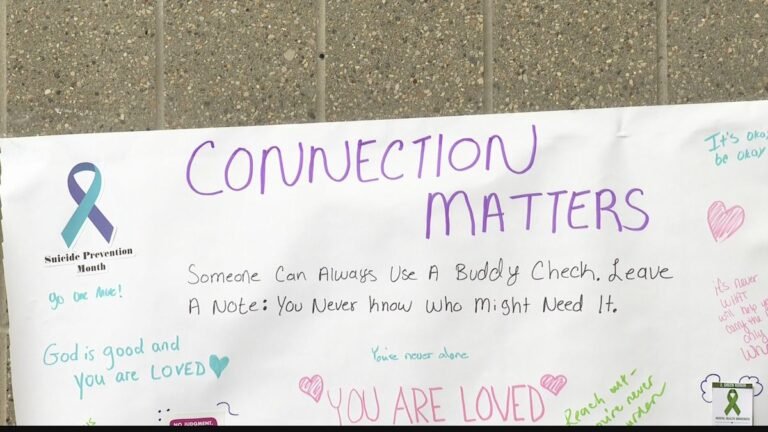 CONNECTION
MATTERS
It's okay
be okay
Suicide Prevention
Month
Someone Can Always Use A Buddy Check. Leave
A Note: You Never Know Who Might Need It.
go one more!
God is good and
you are LOVED
You're never alone
YOU ARE LOVED
Reach out-
you're never
burden
it's never
WHAT
will help you
carry the
only
NO JUDGMENT.